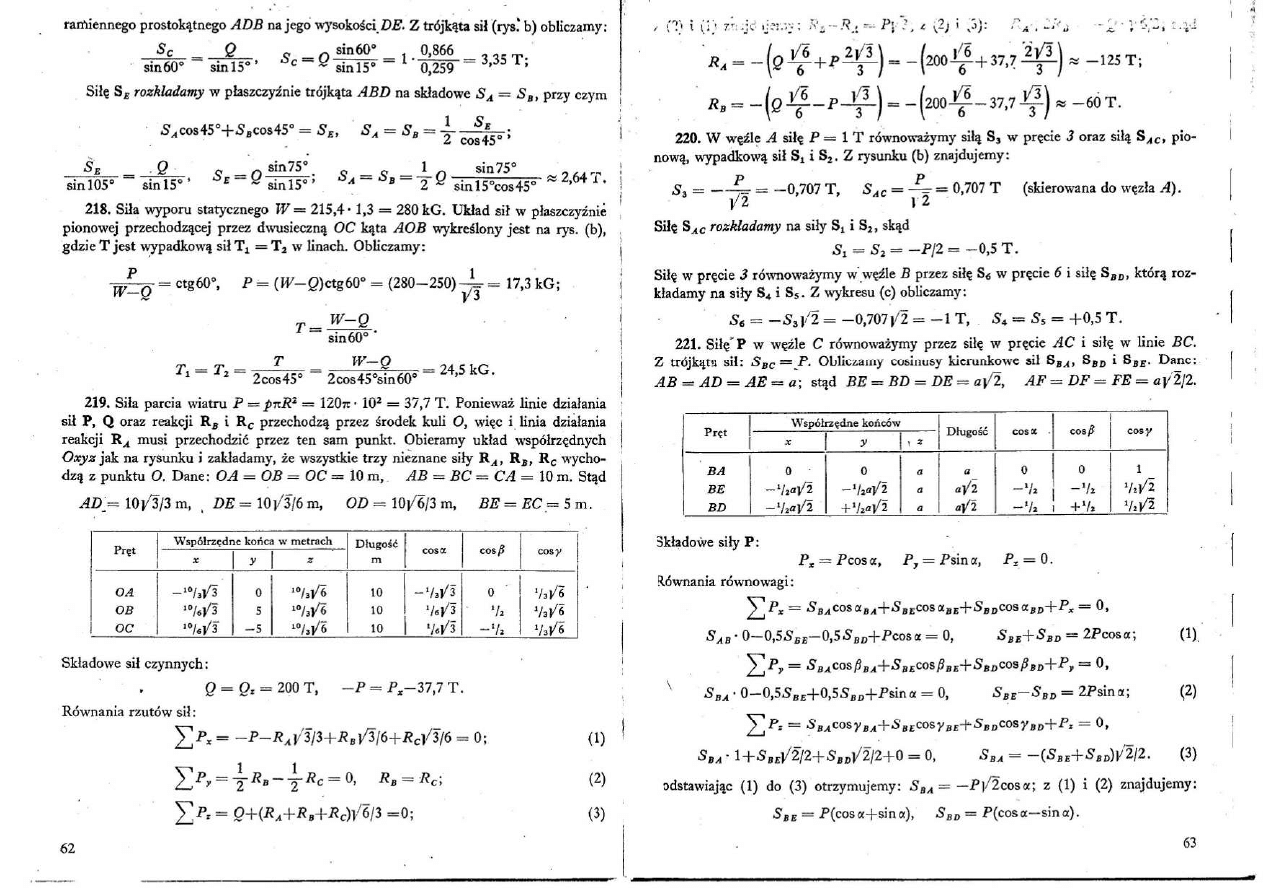 ramiennego prostokątnego ADB na jego wysokości DE. Z trójkąta sił (rys. b) obliczamy:
S_C / sin60° = Q / sin15°, S_C = Q sin60° / sin15° = 1· 0,866 / 0,259 = 3,35 T;
Siłę S_E rozkładamy w płaszczyźnie trójkąta ABD na składowe S_A = S_B, przy czym
S_A cos45°+S_B cos45° = S_E, S_A = S_B = 1/2 S_E / cos45°;
S_E / sin105° = Q / sin15°, S_E = Q sin75° / sin15°; S_A = S_B = 1/2 Q sin75° / sin15°cos45° ≈ 2,64 T.
218. Siła wyporu statycznego W = 215,4 · 1,3 = 280 kG. Układ sił w płaszczyźnie
pionowej przechodzącej przez dwusieczną OC kąta AOB wykreślony jest na rys. (b),
gdzie T jest wypadkową sił T₁ = T₂ w linach. Obliczamy:
P / W−Q = ctg60°, P = (W−Q)ctg60° = (280−250) 1/√3 = 17,3 kG;
T = W−Q / sin60°.
T₁ = T₂ = T / 2cos45° = W−Q / 2cos45°sin60° = 24,5 kG.
219. Siła parcia wiatru P = pπR² = 120π · 10² = 37,7 T. Ponieważ linie działania
sił P, Q oraz reakcji R_B i R_C przechodzą przez środek kuli O, więc i linia działania
reakcji R_A musi przechodzić przez ten sam punkt. Obieramy układ współrzędnych
Oxyz jak na rysunku i zakładamy, że wszystkie trzy nieznane siły R_A, R_B, R_C wycho-
dzą z punktu O. Dane: OA = OB = OC = 10 m, AB = BC = CA = 10 m. Stąd
AD = 10√3/3 m, DE = 10√3/6 m, OD = 10√6/3 m, BE = EC = 5 m.
Pręt Współrzędne końca w metrach Długość m cosα cosβ cosγ
x y z
OA −¹⁰/₃√3 0 ¹⁰/₃√6 10 −¹/₃√3 0 ¹/₃√6
OB ¹⁰/₆√3 5 ¹⁰/₃√6 10 ¹/₆√3 ¹/₂ ¹/₃√6
OC ¹⁰/₆√3 −5 ¹⁰/₃√6 10 ¹/₆√3 −¹/₂ ¹/₃√6
Składowe sił czynnych:
Q = Q_z = 200 T, −P = P_x−37,7 T.
Równania rzutów sił:
∑P_x = −P−R_A√3/3+R_B√3/6+R_C√3/6 = 0; (1)
∑P_y = 1/2 R_B − 1/2 R_C = 0, R_B = R_C; (2)
∑P_z = Q+(R_A+R_B+R_C)√6/3 =0; (3)
62
R_A = −(Q √6/6 + P 2√3/3) = −(200 √6/6 + 37,7 2√3/3) ≈ −125 T;
R_B = −(Q √6/6 − P √3/3) = −(200 √6/6 − 37,7 √3/3) ≈ −60 T.
220. W węźle A siłę P = 1 T równoważymy siłą S₃ w pręcie 3 oraz siłą S_AC, pio-
nową, wypadkową sił S₁ i S₂. Z rysunku (b) znajdujemy:
S₃ = − P/√2 = −0,707 T, S_AC = P/√2 = 0,707 T (skierowana do węzła A).
Siłę S_AC rozkładamy na siły S₁ i S₂, skąd
S₁ = S₂ = −P/2 = −0,5 T.
Siłę w pręcie 3 równoważymy w węźle B przez siłę S₆ w pręcie 6 i siłę S_BD, którą roz-
kładamy na siły S₄ i S₅. Z wykresu (c) obliczamy:
S₆ = −S₃√2 = −0,707√2 = −1 T, S₄ = S₅ = +0,5 T.
221. Siłę P w węźle C równoważymy przez siłę w pręcie AC i siłę w linie BC.
Z trójkąta sił: S_BC = P. Obliczamy cosinusy kierunkowe sił S_BA, S_BD i S_BE. Dane:
AB = AD = AE = a; stąd BE = BD = DE = a√2, AF = DF = FE = a√2/2.
Pręt Współrzędne końców Długość cosα cosβ cosγ
x y z
BA 0 0 a a 0 0 1
BE −¹/₂a√2 −¹/₂a√2 a a√2 −¹/₂ −¹/₂ ¹/₂√2
BD −¹/₂a√2 +¹/₂a√2 a a√2 −¹/₂ +¹/₂ ¹/₂√2
Składowe siły P:
P_x = Pcosα, P_y = Psinα, P_z = 0.
Równania równowagi:
∑P_x = S_BA cosα_BA+S_BE cosα_BE+S_BD cosα_BD+P_x = 0,
S_AB · 0−0,5S_BE−0,5S_BD+Pcosα = 0, S_BE+S_BD = 2Pcosα; (1)
∑P_y = S_BA cosβ_BA+S_BE cosβ_BE+S_BD cosβ_BD+P_y = 0,
S_BA · 0−0,5S_BE+0,5S_BD+Psinα = 0, S_BE−S_BD = 2Psinα; (2)
∑P_z = S_BA cosγ_BA+S_BE cosγ_BE+S_BD cosγ_BD+P_z = 0,
S_BA · 1+S_BE√2/2+S_BD√2/2+0 = 0, S_BA = −(S_BE+S_BD)√2/2. (3)
odstawiając (1) do (3) otrzymujemy: S_BA = −P√2cosα; z (1) i (2) znajdujemy:
S_BE = P(cosα+sinα), S_BD = P(cosα−sinα).
63